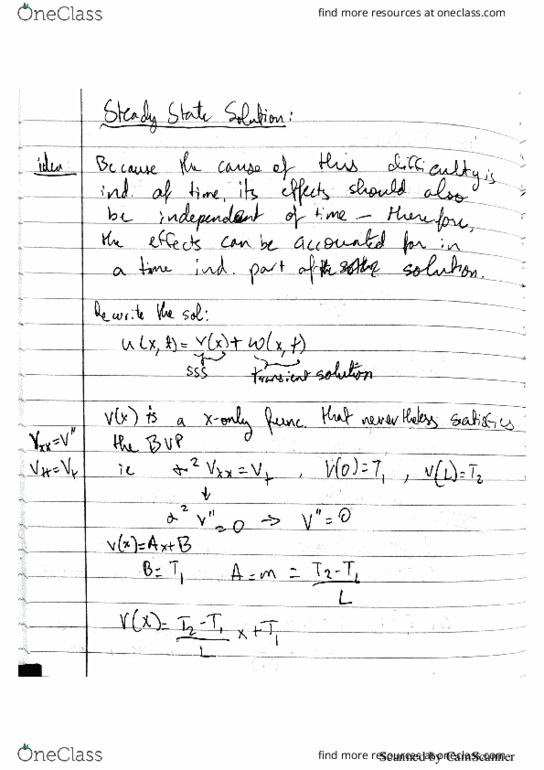 OneClass
find more resources at oneclass.com
Steady State Solution:
idea
Because the cause of this difficulty is
ind of time, its effects should also
be independent of time – therefore,
the effects can be accounted for in
a time ind. part of the solution.
Rewrite the sol:
u(x,t) = v(x) + w(x,t)
SSS transient solution
v(x) is a x-only func. that nevertheless satisfies
the BVP
Vxx = V"
ie α² Vxx = Vt , V(0) = T1 , V(L) = T2
↓
α² V" = 0 → V" = 0
v(x) = Ax + B
B = T1 A = m = T2 - T1
L
V(x) = T2 - T1 x + T1
L
OneClass
find more resources at oneclass.com
Scanned by CamScanner